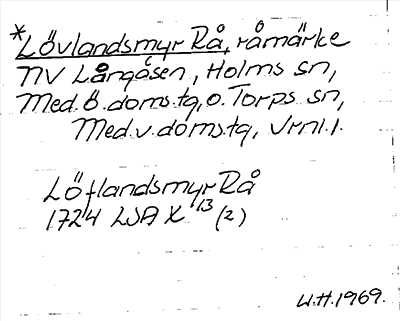 *Lövlandsmyr Rå, råmärke
NV Långåsen, Holms sn,
Med. ö. doms. tg, o. Torps sn,
Med. v. doms. tg, Vrml. l.
Löflandsmyr Rå
1724 LSA X 13 (2)
W.H. 1969.